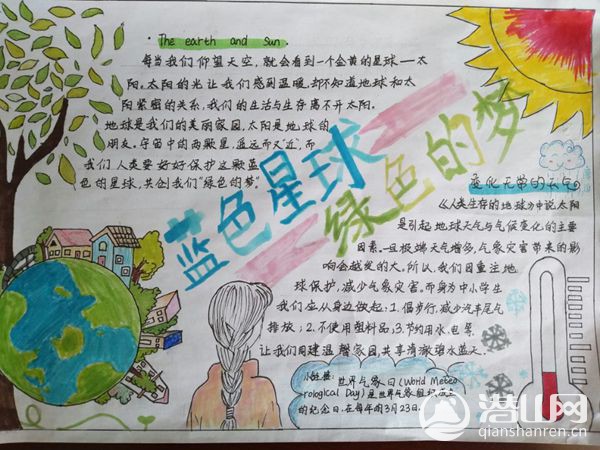 · The earth and sun.
每当我们仰望天空,就会看到一个金黄的星球——太
阳。太阳的光让我们感到温暖,却不知道地球和太
阳紧密的关系,我们的生活与生存离不开太阳。
地球是我们的美丽家园,太阳是地球的
朋友。宇宙中的两颗星,遥远而又"近",而
我们人类要好好保护这颗蓝
色的星球,共创我们"绿色的梦"。
蓝色星球
绿色的梦
变化无常的天气
《人类生存的地球》中说太阳
是引起地球天气与气候变化的主要
因素。且极端天气增多,气象灾害带来的影
响会越发的大。所以,我们因重注地
球保护,减少气象灾害。而身为中小学生
我们应从身边做起:1.倡步行,减少汽车尾气
排放;2.不使用塑料品;3.节约用水、电等
让我们用建温馨家园,共享清澈碧水蓝天。
小链接:世界气象日(World Meteo
rological Day)是世界气象组织成立
的纪念日,在每年的3月23日.
潜山网
qianshanren.cn